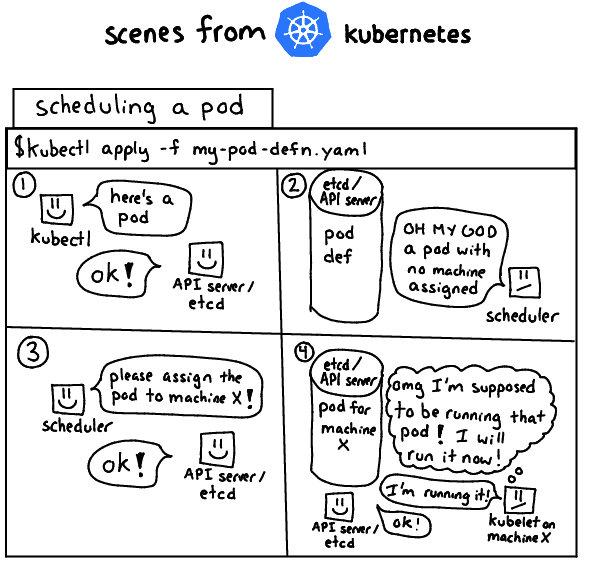 scenes from kubernetes
scheduling a pod
$kubectl apply -f my-pod-defn.yaml
1
here's a
pod
kubectl
ok!
API server/
etcd
2
etcd/
API server
pod
def
OH MY GOD
a pod with
no machine
assigned
scheduler
3
please assign the
pod to machine X!
scheduler
ok!
API server/
etcd
4
etcd/
API server
pod for
machine
X
omg I'm supposed
to be running that
pod! I will
run it now!
I'm running it!
kubelet on
machine X
ok!
API server/
etcd